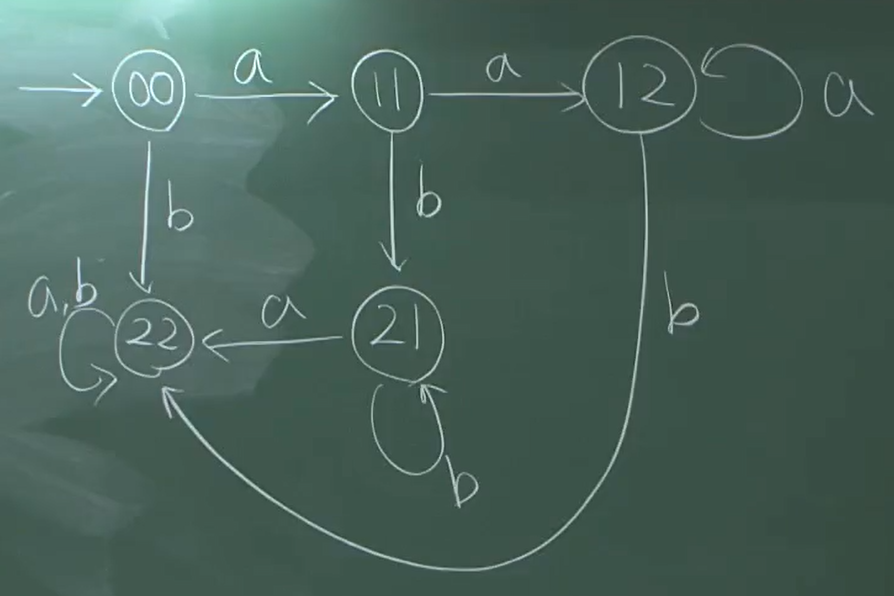 00 a 11 a 12 a
b b b
a,b 22 a 21
b